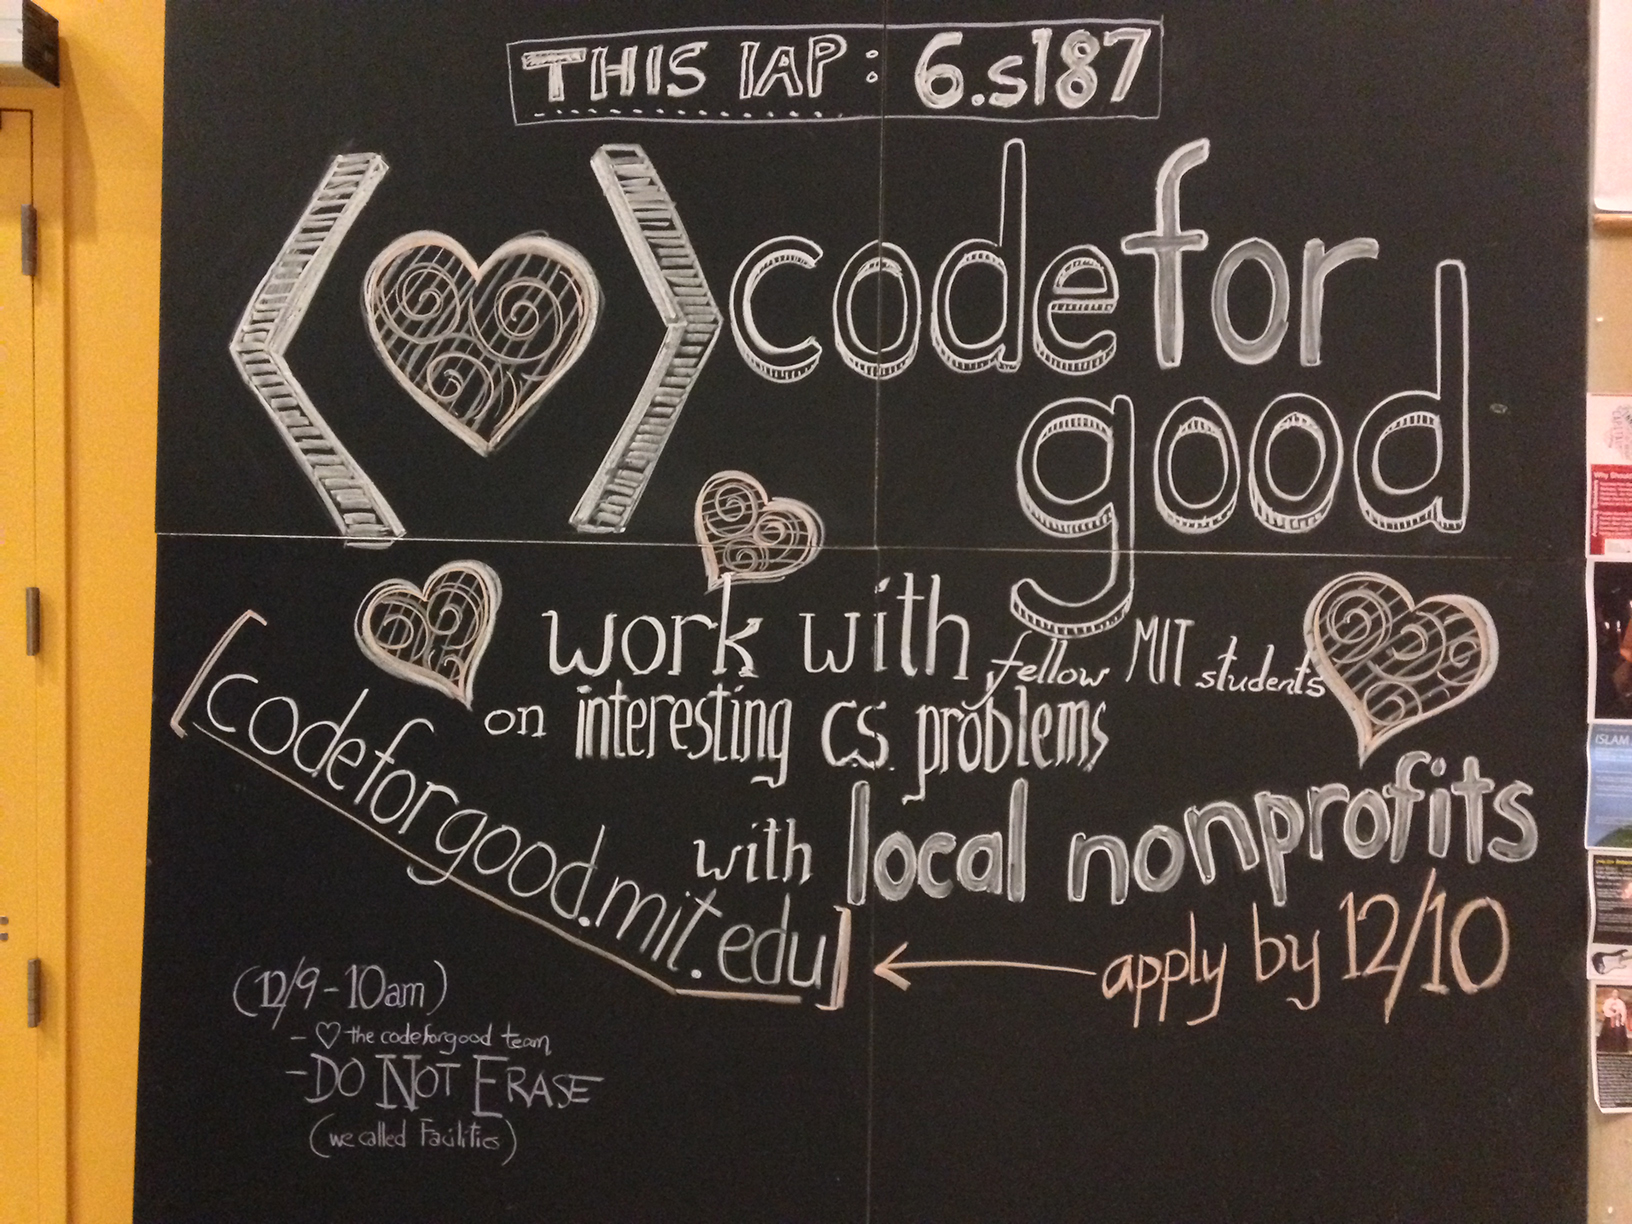 THIS IAP: 6.s187
codefor
good
work with fellow MIT students
on interesting CS problems
with local nonprofits
[codeforgood.mit.edu]
apply by 12/10
(12/9-10am)
- ♡ the codeforgood team
- DO NOT ERASE
(we called Facilities)
Why Should
ISLAM